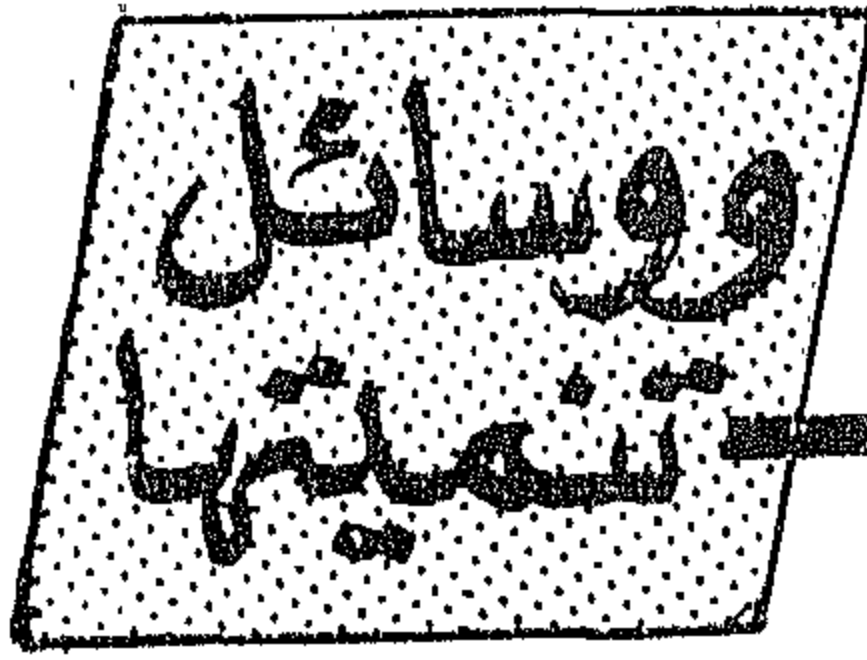 ووسائل
تنميتها